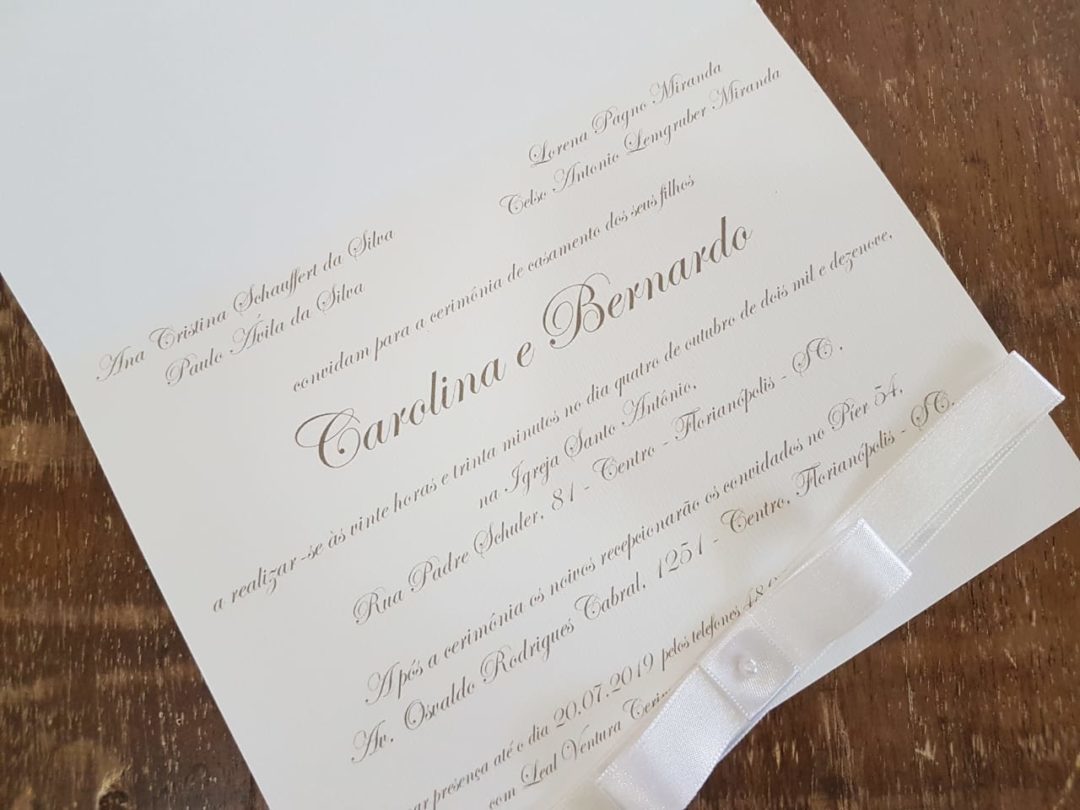 Ana Cristina Schauffert da Silva
Paulo Ávila da Silva
Lorena Pagno Miranda
Celso Antonio Lemgruber Miranda
convidam para a cerimônia de casamento dos seus filhos
Carolina e Bernardo
a realizar-se às vinte horas e trinta minutos no dia quatro de outubro de dois mil e dezenove,
na Igreja Santo Antônio,
Rua Padre Schuler, 81 - Centro - Florianópolis - SC.
Após a cerimônia os noivos recepcionarão os convidados no Píer 54,
Av. Osvaldo Rodrigues Cabral, 1251 - Centro, Florianópolis - SC.
ar presença até o dia 20.07.2019 pelos telefones 48
com Leal Ventura Ceri